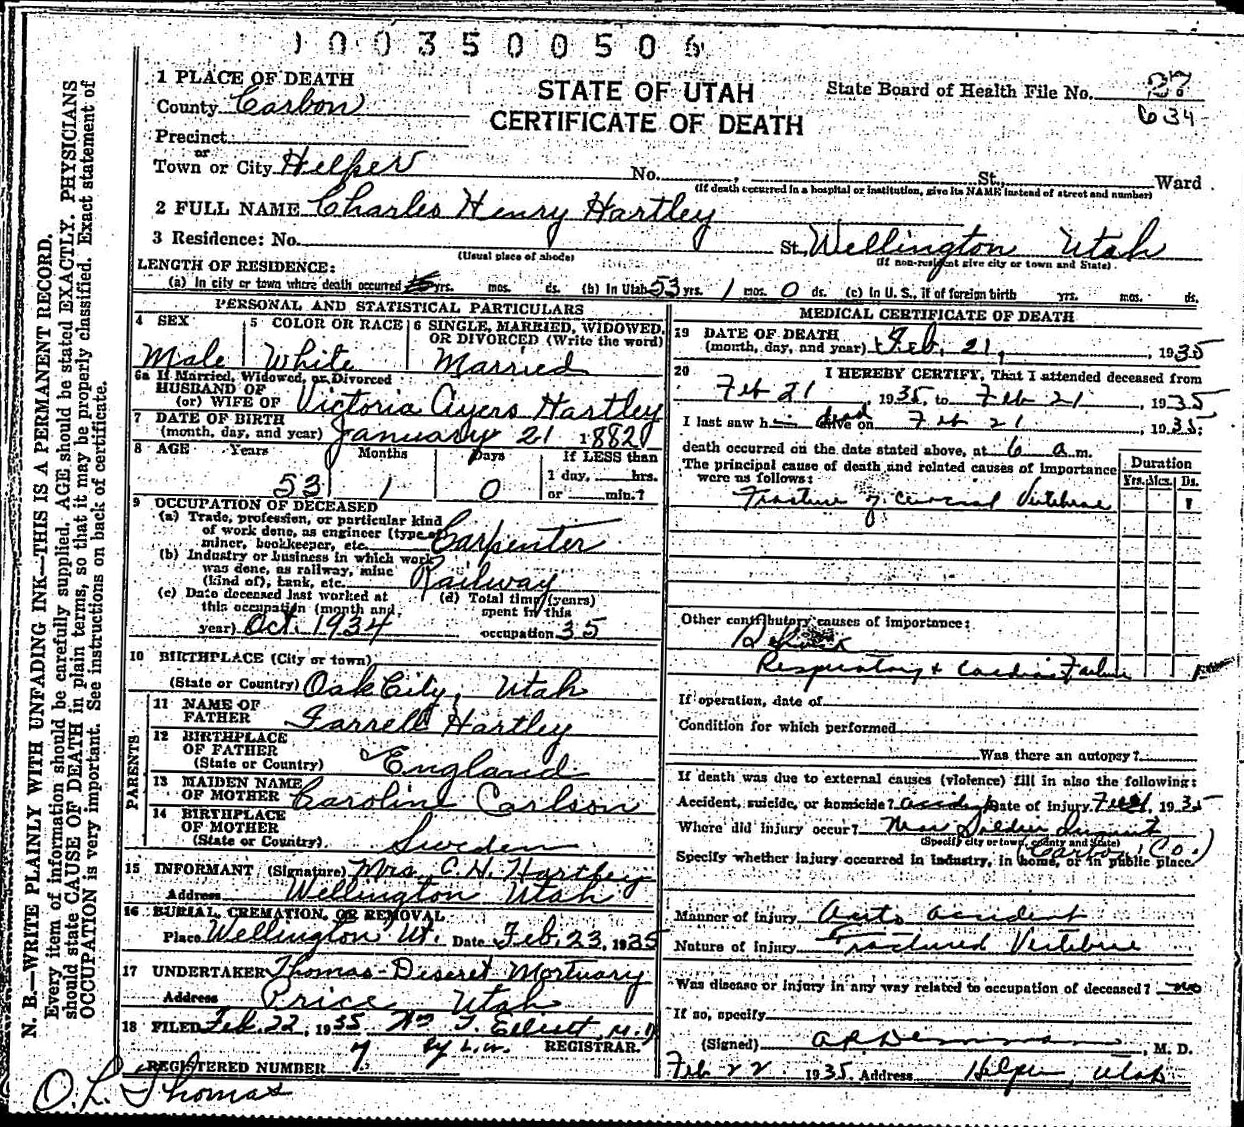 1003500506
1 PLACE OF DEATH
STATE OF UTAH
CERTIFICATE OF DEATH
State Board of Health File No. 37
634
County Carbon
Precinct
or
Town or City Helper No. , St., Ward
(If death occurred in a hospital or institution, give its NAME instead of street and number)
2 FULL NAME Charles Henry Hartley
3 Residence: No. St. Wellington Utah
(Usual place of abode) (If non-resident give city or town and State)
LENGTH OF RESIDENCE:
(a) In city or town where death occurred yrs. mos. ds. (b) In Utah 53 yrs. 1 mos. 0 ds. (c) In U. S., if of foreign birth yrs. mos. ds.
PERSONAL AND STATISTICAL PARTICULARS
4 SEX
Male
5 COLOR OR RACE
White
6 SINGLE, MARRIED, WIDOWED, OR DIVORCED (Write the word)
Married
6a If Married, Widowed, or Divorced
HUSBAND OF
(or) WIFE OF Victoria Ayers Hartley
7 DATE OF BIRTH
(month, day, and year) January 21 1882
8 AGE Years Months Days If LESS than
53 1 0 1 day, hrs.
or min.?
9 OCCUPATION OF DECEASED
(a) Trade, profession, or particular kind
of work done, as engineer (type of
miner, bookkeeper, etc. Carpenter
(b) Industry or business in which work
was done, as railway, mine
(kind of), bank, etc. Railway
(c) Date deceased last worked at
this occupation (month and
year) Oct. 1934
(d) Total time (years)
spent in this
occupation 35
10 BIRTHPLACE (City or town)
(State or Country) Oak City, Utah
PARENTS
11 NAME OF
FATHER Farrell Hartley
12 BIRTHPLACE
OF FATHER
(State or Country) England
13 MAIDEN NAME
OF MOTHER Caroline Carlson
14 BIRTHPLACE
OF MOTHER
(State or Country) Sweden
15 INFORMANT (Signature) Mrs. C. H. Hartley
Address Wellington Utah
16 BURIAL, CREMATION, OR REMOVAL
Place Wellington Ut. Date Feb. 23, 1935
17 UNDERTAKER Thomas-Deseret Mortuary
Address Price Utah
18 FILED Feb. 22, 1935 Wm T. Elliott, M. D
by L.W. REGISTRAR.
REGISTERED NUMBER 7
O. L. Thomas
MEDICAL CERTIFICATE OF DEATH
19 DATE OF DEATH
(month, day, and year) Feb. 21, , 1935
20 I HEREBY CERTIFY, That I attended deceased from
Feb 21 , 1935, to Feb 21 , 1935
I last saw h dead alive on Feb 21 , 1935;
death occurred on the date stated above, at 6 a. m.
The principal cause of death and related causes of importance
were as follows:
Duration
Yrs. Mos. Ds.
Fracture of Cervical Vertebrae 1
Other contributory causes of importance:
Respiratory + Cardiac Failure
If operation, date of
Condition for which performed
Was there an autopsy?
If death was due to external causes (violence) fill in also the following:
Accident, suicide, or homicide? accident Date of injury Feb 21, 1935
Where did injury occur? Near Soldier Summit
(Specify city or town, county and State)
(Carbon Co.)
Specify whether injury occurred in industry, in home, or in public place.
Manner of injury Auto accident
Nature of Injury Fractured Vertebrae
Was disease or injury in any way related to occupation of deceased? no
If so, specify
(Signed) , M. D.
Feb 22 1935. Address Helper, Utah
N. B.—WRITE PLAINLY WITH UNFADING INK—THIS IS A PERMANENT RECORD.
Every item of information should be carefully supplied. AGE should be stated EXACTLY. PHYSICIANS
should state CAUSE OF DEATH in plain terms, so that it may be properly classified. Exact statement of
OCCUPATION is very important. See instructions on back of certificate.